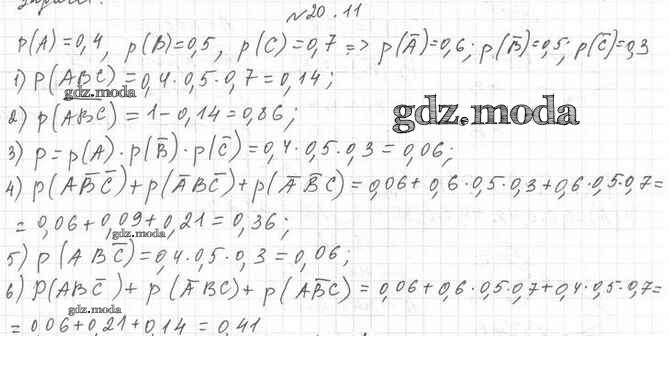 №20.11
p(A)=0,4, p(B)=0,5, p(C)=0,7 => p(A̅)=0,6; p(B̅)=0,5; p(C̅)=0,3
1) p(ABC)=0,4·0,5·0,7=0,14;
gdz.moda
2) p(A̅B̅C̅)=1-0,14=0,86;
gdz.moda
3) p=p(A)·p(B̅)·p(C̅)=0,4·0,5·0,3=0,06;
4) p(AB̅C̅)+p(A̅BC̅)+p(A̅B̅C)=0,06+0,6·0,5·0,3+0,6·0,5·0,7=
=0,06+0,09+0,21=0,36;
gdz.moda
5) p(ABC̅)=0,4·0,5·0,3=0,06;
6) p(ABC̅)+p(A̅BC)+p(AB̅C)=0,06+0,6·0,5·0,7+0,4·0,5·0,7=
gdz.moda
=0,06+0,21+0,14=0,41